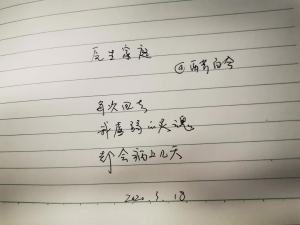 原生家庭
@西贡白令
每次回去
我虚弱的灵魂
都会病上几天
2020.5.18